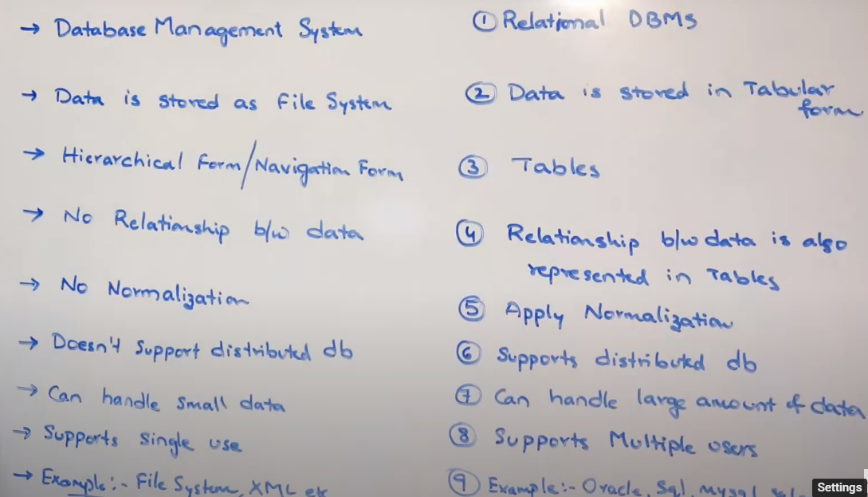 → Database Management System
→ Data is stored as File System
→ Hierarchical Form/Navigation Form
→ No Relationship b/w data
→ No Normalization
→ Doesn't support distributed db
→ Can handle small data
→ Supports single use
→ Example:- File System, XML etc
① Relational DBMS
② Data is stored in Tabular
form
③ Tables
④ Relationship b/w data is also
represented in Tables
⑤ Apply Normalization
⑥ Supports distributed db
⑦ Can handle large amount of data
⑧ Supports Multiple users
⑨ Example:- Oracle, Sql, mysql
Settings